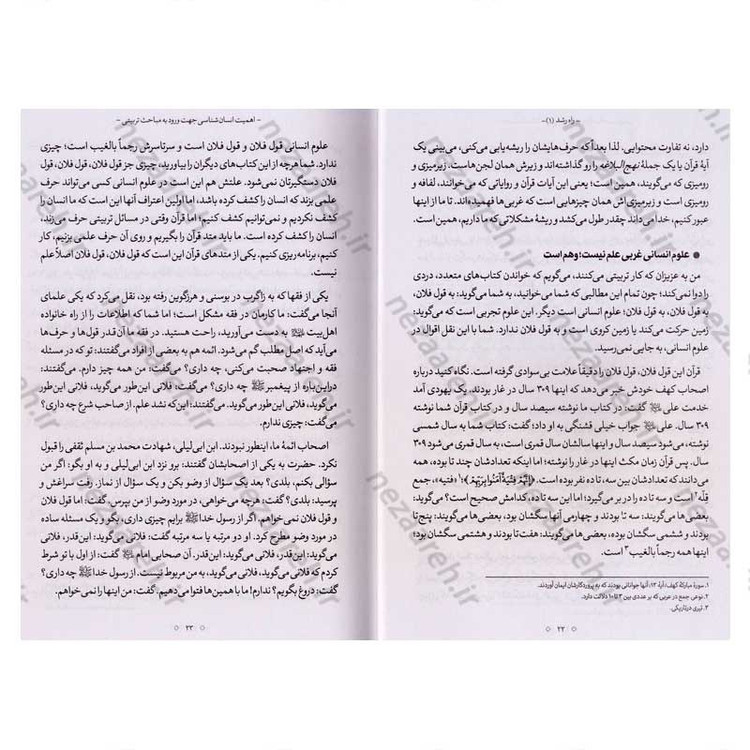 - راه رشد (۱) -
دارد، نه تفاوت محتوایی. لذا بعداً که حرف‌هایشان را ریشه‌یابی می‌کنی، می‌بینی یک
آیهٔ قرآن یا یک جملهٔ نهج‌البلاغه را رو گذاشته‌اند و زیرش همان لجن‌هاست. زیرمیزی و
رومیزی که می‌گویند، همین است؛ یعنی این آیات قرآن و روایاتی که می‌خوانند، لفافه و
رومیزی است و زیرمیزی‌اش همان چیزهایی است که غربی‌ها فهمیده‌اند. تا ما از اینها
عبور کنیم، خدا می‌داند چقدر طول می‌کشد و ریشهٔ مشکلاتی که ما داریم، همین است.
● علوم انسانی غربی علم نیست؛ وهم است
من به عزیزان که کار تربیتی می‌کنند، می‌گویم که خواندن کتاب‌های متعدد، دردی
را دوا نمی‌کند؛ چون تمام این مطالبی که شما می‌خوانید، به شما می‌گوید: به قول فلان،
به قول فلان، به قول فلان؛ علوم انسانی است دیگر. این علوم تجربی است که می‌گوید:
زمین حرکت می‌کند یا زمین کروی است و به قول فلان ندارد. شما با این نقل اقوال در
علوم انسانی، به جایی نمی‌رسید.
قرآن این قول فلان، قول فلان را دقیقاً علامت بی‌سوادی گرفته است. نگاه کنید درباره
اصحاب کهف خودش خبر می‌دهد که اینها ۳۰۹ سال در غار بودند. یک یهودی آمد
خدمت علی ﷷ گفت: در کتاب ما نوشته سیصد سال و در کتاب قرآن شما نوشته
۳۰۹ سال. علی ﷷ جواب خیلی قشنگی به او داد؛ گفت: کتاب شما به سال شمسی
نوشته، می‌شود سیصد سال و اینها سالشان سال قمری است، به سال قمری می‌شود ۳۰۹
سال. پس قرآن زمان مکث اینها در غار را نوشته؛ اما اینکه تعدادشان چند تا بوده، همه
مانده‌اند که تعدادشان بین سه، تا ده نفر بوده است. ﴿إِنَّهُمْ فِتْيَةٌ آمَنُوا بِرَبِّهِمْ﴾؛۱ «فتیه»، جمع
قلّه۲ است و سه تا ده را در بر می‌گیرد؛ اما این سه تا ده، کدامش صحیح است؟ می‌گوید:
بعضی‌ها می‌گویند: سه تا بودند و چهارمی آنها سگشان بود، بعضی‌ها می‌گویند: پنج تا
بودند و ششمی سگشان بود؛ بعضی‌ها می‌گویند: هفت تا بودند و هشتمی سگشان بود؛
اینها همه رجماً بالغیب۳ است.
۱. سورهٔ مبارکهٔ کهف، آیهٔ ۱۳؛ آنها جوانانی بودند که به پروردگارشان ایمان آوردند.
۲. نوعی جمع در عربی که بر عددی بین ۳ تا ۱۰ دلالت دارد.
۳. تیری در تاریکی.
۲۲
- اهمیت انسان‌شناسی جهت ورود به مباحث تربیتی -
علوم انسانی قول فلان و قول فلان است و سرتاسرش رجماً بالغیب است؛ چیزی
ندارد. شما هرچه از این کتاب‌های دیگران را بیاورید، چیزی جز قول فلان، قول فلان، قول
فلان دستگیرتان نمی‌شود. علتش هم این است در علوم انسانی کسی می‌تواند حرف
علمی بزند که انسان را کشف کرده باشد، اما اولین اعتراف آنها این است که ما انسان را
کشف نکردیم و نمی‌توانیم کشف کنیم؛ اما قرآن وقتی در مسائل تربیتی حرف می‌زند،
انسان را کشف کرده است. ما باید متد قرآن را بگیریم و روی آن حرف علمی بزنیم، کار
کنیم، برنامه‌ریزی کنیم. یکی از متدهای قرآن این است که قول فلان، قول فلان اصلاً علم
نیست.
یکی از فقها که به زاگرب در بوسنی و هرزگوین رفته بود، نقل می‌کرد که یکی علمای
آنجا می‌گفت: ما کارمان در فقه مشکل است؛ اما شما که اطلاعات را از راه خانواده
اهل‌بیت ﷷ به دست می‌آورید، راحت هستید. در فقه ما آن‌قدر قول‌ها و حرف‌ها
می‌آید که اصل مطلب گم می‌شود. ائمه هم به بعضی از افراد می‌گفتند: تو که در مسئله
فقه و اجتهاد صحبت می‌کنی، چه داری؟ می‌گفت: من همه چیز دارم. می‌گفتند:
دراین‌باره از پیغمبر ﷺ چه داری؟ می‌گفت: فلانی این‌طور می‌گوید، فلانی این‌طور
می‌گوید، فلانی این‌طور می‌گوید. می‌گفتند: این‌که نشد علم. از صاحب شرع چه داری؟
می‌گفت: چیزی ندارم.
اصحاب ائمهٔ ما، اینطور نبودند. ابن ابی‌لیلی، شهادت محمد بن مسلم ثقفی را قبول
نکرد. حضرت به یکی از اصحابشان گفتند: برو نزد ابن ابی‌لیلی و به او بگو: اگر من
سؤالی بکنم، بلدی؟ بعد یک سؤال از وضو بکن و یک سؤال از نماز. رفت سراغش و
پرسید: بلدی؟ گفت: هرچه می‌خواهی، در مورد وضو از من بپرس. گفت: اما قول فلان
و قول فلان نمی‌خواهم. اگر از رسول خدا ﷺ برایم چیزی داری، بگو و یک مسئله ساده
در مورد وضو مطرح کرد. او دو مرتبه یا سه مرتبه گفت: فلانی می‌گوید: این‌قدر، فلانی
می‌گوید: این‌قدر، فلانی می‌گوید: این‌قدر. آن صحابی امام ﷷ گفت: از اول با تو شرط
کردم که فلانی می‌گوید، فلانی می‌گوید، به من مربوط نیست. از رسول خدا ﷺ چه داری؟
گفت: دروغ بگویم؟ ندارم! ما با همین‌ها فتوا می‌دهیم. گفت: من اینها را نمی‌خواهم.
۲۳
nezaareh.ir